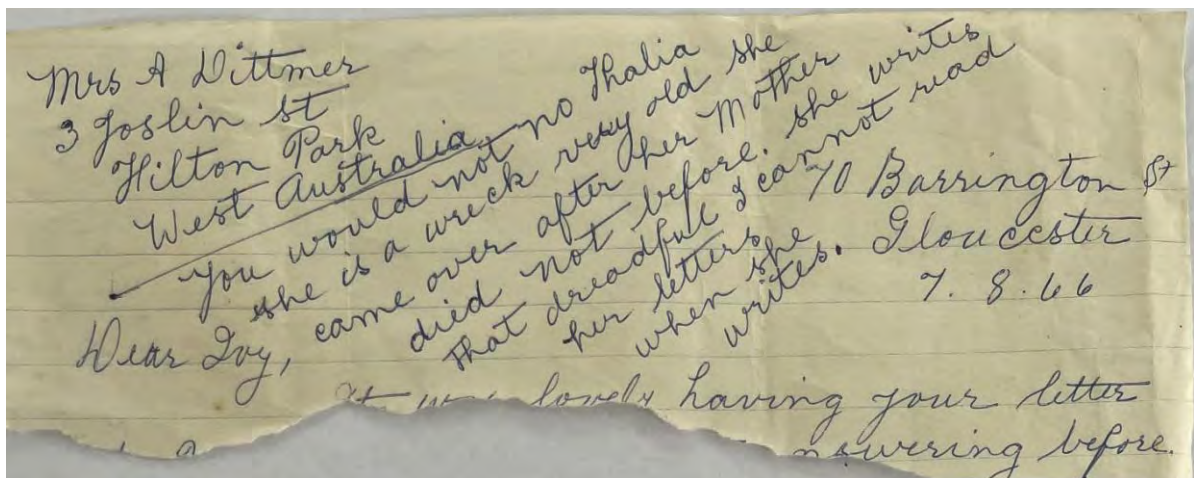 Mrs A Dittmer
3 Joslin St
Hilton Park
West Australia
You would not no Thalia
she is a wreck very old she
came over after her Mother
died not before. she writes
that dreadful I cannot read
her letters
when she
writes.
70 Barrington St
Gloucester
7. 8. 66
Dear Ivy,
It was lovely having your letter
before.